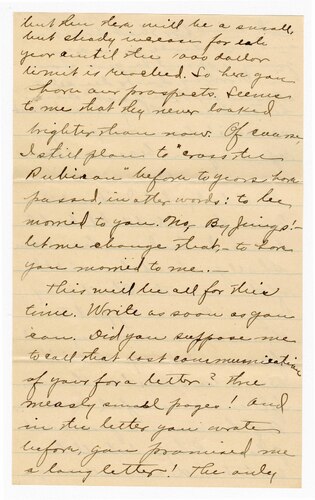 but then there will be a small,
but steady increase for each
year until the 1000 dollar
limit is reached. So here you
have our prospects. Seems
to me that they never looked
brighter than now. Of course,
I still plan to "cross the
Rubican" before 10 years have
passed, in other words: to be
married to you. No, By Jings! –
let me change that, – to have
you married to me. –
This will be all for this
time. Write as soon as you
can. Did you suppose me
to call that last communication
of your for a letter? Three
measly small pages! And
in the letter you wrote
before, you promised me
a long letter! The only